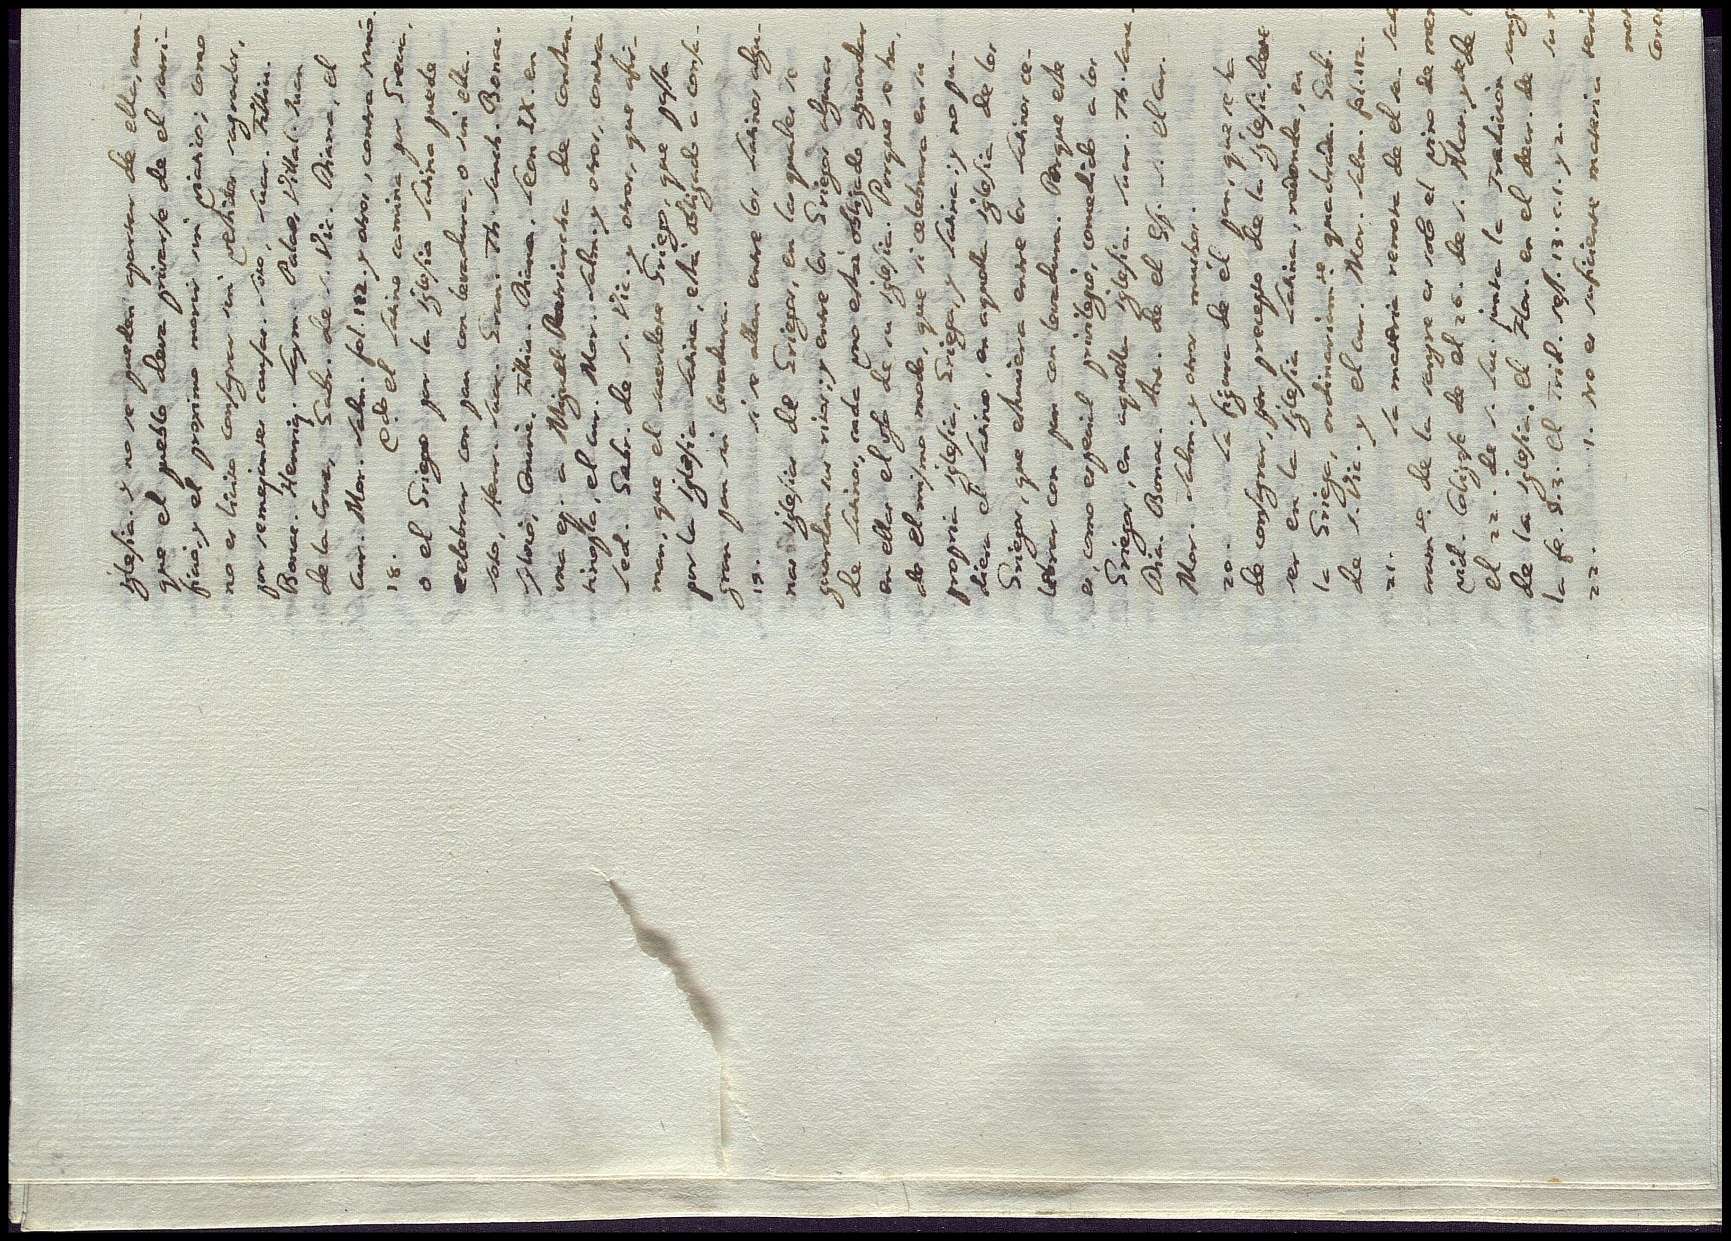 iglesia. y no se pueden apartar de ella, aun-
que el pueblo deva privarse de el sacri-
ficio, y el proximo morir sin viatico; como
no es licito consagrar sin vestidos sagrados,
por semejantes causas. soto, suar. Filliu.
Bonac. Henriq. Laym. Palao, Villal. Juan
de la Cruz, Gabr. de S. Vic. Diana, el
Cur. Mor. Salm. fol. 182. y otros, contra
18. Cdo. el latino camina por Grecia,
o el Griego por la iglesia latina puede
celebrar con pan con levadura, o sin ella.
soto, suar. Th. sanch. Bonac.
Filliu. Diana. Leon IX. en
una ep. a Miguel Patriarcha de Constan-
tinopla, el Cur. Mor. Salm. y otros, contra
Led. Gabr. de S. Vic. y otros, que afir-
man, que el sacerdote Griego, que passa
por la iglesia latina, está obligado a consa-
grar pan sin levadura.
19. si se allan entre los latinos algu-
nas iglesias de Griegos, en las quales se
guardan sus ritos; y entre los Griegos algunas
de latinos, cada uno está obligado aguardar
en ellas el uso de su iglesia. Porque se ha,
de el mismo modo, que si celebrara en su
propria iglesia, Griega, y latina; y no pu-
diera el latino, en aquella iglesia de los
Griegos, que estuviera entre los latinos ce-
lebrar con pan con levadura. Porque este
es, como especial privilegio, concedido a los
Griegos, en aquella iglesia. suar. Th. sanc.
Dia. Bonac. de el Esp. s. el Cur.
Mor. Salm. y otros muchos.
20. La figura de el pan, que se ha
de consagrar, por precepto de la iglesia, deve
ser en la iglesia latina, redonda, en
la Griega, ordinariamte. quadrada. Gab.
de S. Vic. y el Cur. Mor. Salm. fol. 182.
21. La materia remota de el sa
mto. de la sangre es solo el vino de
vid. Colígese de el 26. de S. Mar. y de
el 22. de S. Lu. junta la tradicion
de la iglesia. el Flor. en el decr. de
la fe. El Trid. ses. 13. c. 1. y 2.
22. 1. No es suficiente materia